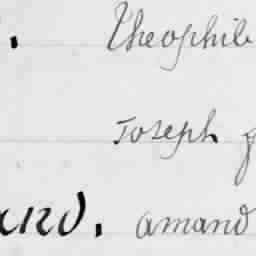 . Theophil
Joseph
and. amand